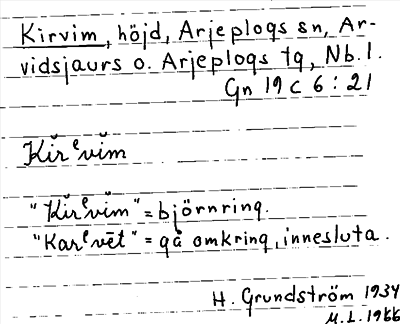 Kirvim, höjd, Arjeplogs sn, Ar-
vidsjaurs o. Arjeplogs tg, Nb. l.
Gn 19 c 6 : 21
Kĭrᵉvĭm
"Kĭrᵉvĭm" = björnring.
"Karᵉvēt" = gå omkring, innesluta.
H. Grundström 1934
M.L. 1966